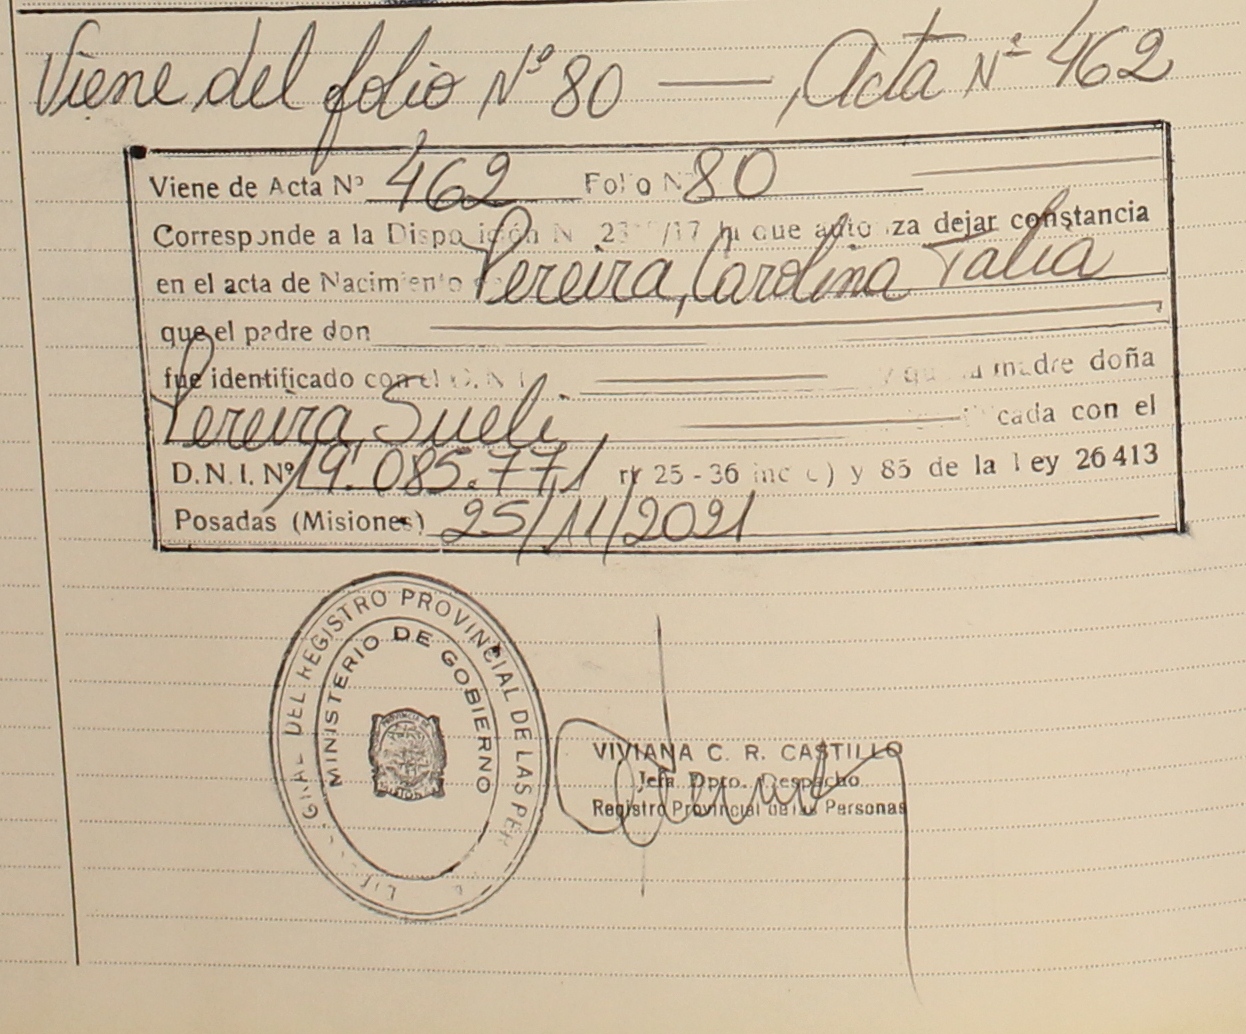 Viene del folio Nº 80 — Acta Nº 462
Viene de Acta Nº 462 Folio Nº 80
Corresponde a la Disposición N 23 /17 que autoriza dejar constancia
en el acta de Nacimiento Pereira, Carolina Talia
que el padre don
fue identificado con el D.N.I. madre doña
Pereira, Sueli, cada con el
D.N.I. Nº 19.085.771 25-36 inc c) y 85 de la ley 26413
Posadas (Misiones) 25/11/2021
DEL REGISTRO PROVINCIAL DE LAS PER
MINISTERIO DE GOBIERNO
PROVINCIA DE
VIVIANA C. R. CASTILLO
Jefa Dpto. Despacho
Registro Provincial de las Personas